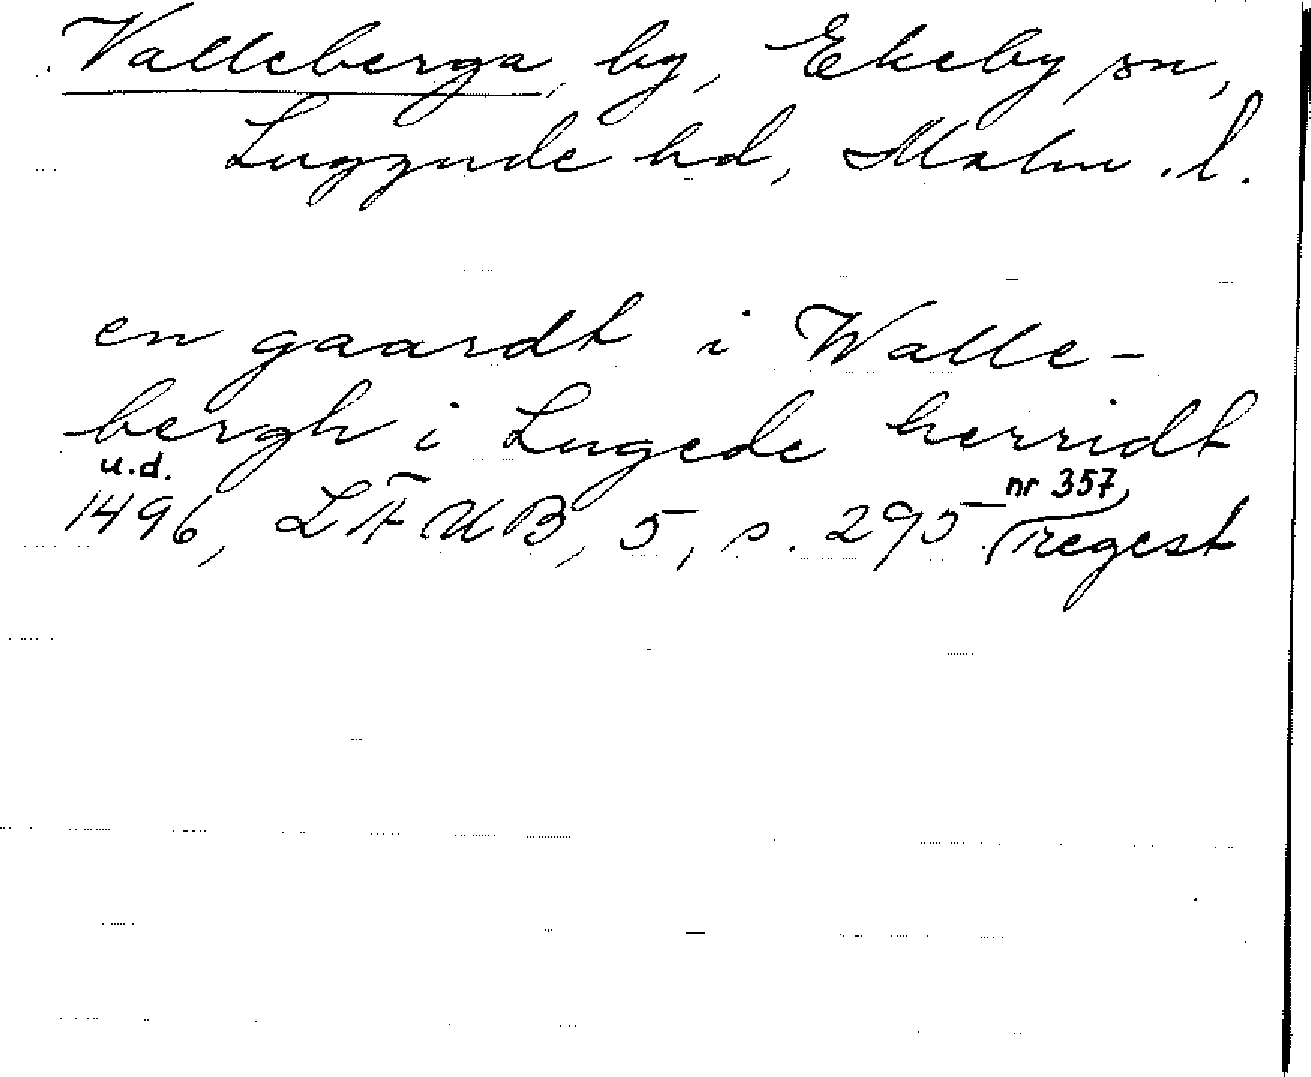 Valleberga, by, Ekeby sn,
Luggude hd, Malm. l.
en gaardt i Walle-
bergh i Lugede herridt
u.d.
1496, LÄUB, 5, s. 295 nr 357, regest